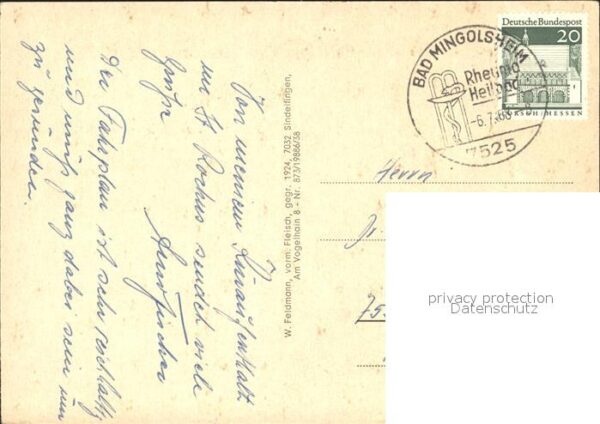 Von meinem Kuraufenthalt
in St Rochus sendet viele
Grüße
Der Fahrplan ist sehr reichhaltig
und muß ganz dabei sein um
zu gesunden.
W. Feldmann, vorm. Fleisch, gegr. 1924, 7032 Sindelfingen,
Am Vogelhain 8 - Nr. 873/19886/58
BAD MINGOLSHEIM
Rheuma
Heilbad
-6.7.68
7525
Deutsche Bundespost
20
LORSCH/HESSEN
Herrn
Dr.
75
privacy protection
Datenschutz